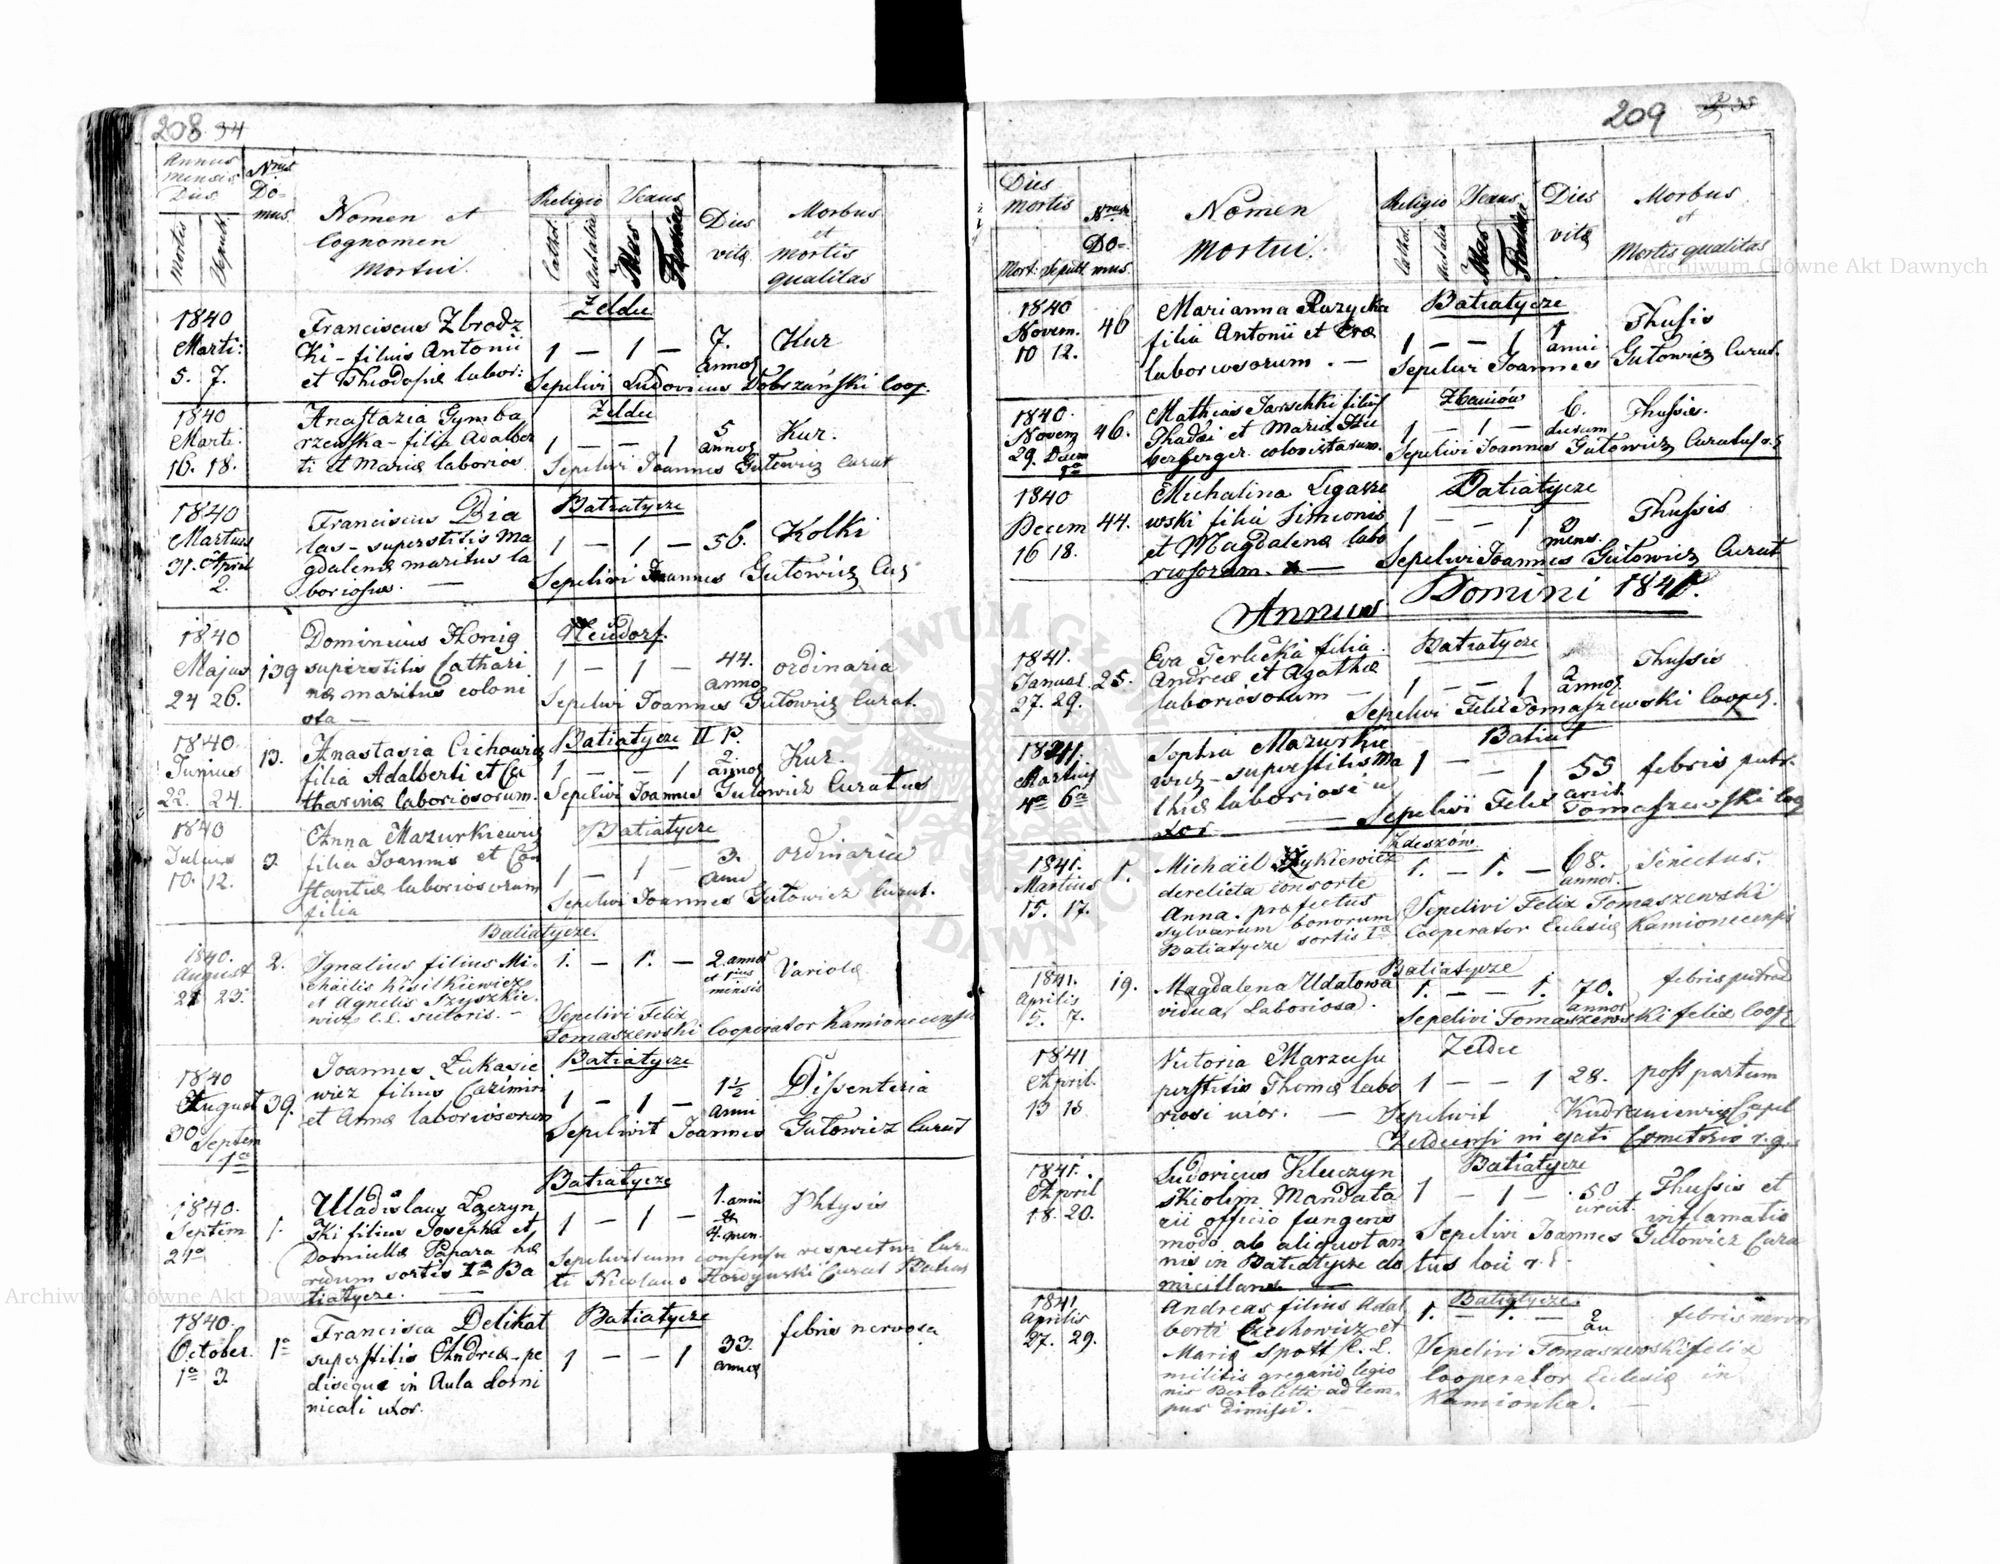 208 34
Annus
mensis
Dies
Nrus
Do-
mus
Nomen et
Cognomen
Mortui.
Religio
Sexus
Dies
vitæ
Morbus
et
mortis
qualitas
Mortis
Sepult.
Cathol.
Mas
1840
Marti:
5. 7.
Franciscus Zbrodz
Ki - filius Antonii
et Theodosiæ labor:
Zeldec
1 — 1 —
7.
annos
Kur
Sepelivi Ludovicus Dobszański Coop.
1840
Marti:
16. 18.
Anastazia Gymba
rzewska - filia Adalber
ti et Mariæ laborios
Zeldec
1 — — 1
5
annos
Kur.
Sepelivi Joannes Gutowicz Curat
1840
Martius
31. April
2.
Franciscus Bia
las - superstitis Ma
gdalenæ maritus la
boriosus. —
Batiatycze
1 — 1 —
56.
Kolki
Sepelivi Joannes Gutowicz Cur
1840
Majus
24 26.
139
Dominicus Honig
superstitis Cathari
næ maritus coloni
sta —
Neudorf.
1 — 1 —
44.
anno
ordinaria
Sepelivi Joannes Gutowicz Curat.
1840.
Junius
22. 24.
13.
Anastasia Cichowicz
filia Adalberti et Ca
tharinæ laboriosorum.
Batiatycze II P.
1 — — 1
2.
annos
Kur.
Sepelivi Joannes Gutowicz Curatus
1840
Julius
10. 12.
Anna Mazurkiewicz
filia Joannis et Con
stantiæ laboriosorum
filia
Batiatycze
1 — 1 —
3.
anni
ordinaria
Sepelivi Joannes Gutowicz Curat.
Batiatycze.
1840.
August
21 23.
2.
Ignatius filius Mi-
chaelis Kisilkiewicz
et Agnetis Szyszkie-
wicz C.L. sutoris. —
1. — 1. —
2. annos
et 1 ius
mensis
Variolæ
Sepelivi Felix
Tomaszewski Cooperator Kamionecensis
1840
August
30 Septem
1a
39.
Joannes Lukasie
wicz filius Cazimiri
et Annæ laboriosorum
Batiatycze
1 — 1 —
1 1/2
anni
Dissenteria
Sepelivit Joannes Gutowicz Curat
1840.
Septem
21a
1.
Uladislaus Laczyn
Ki filius Josephi et
Domicellæ Papara hæ
redum sortis Ia Ba
tiatycze. —
Batiatycze
1 — 1 —
1. anni
&
4. men.
Phtysis
Sepelivit cum consensu respectivi Cura
ti Nicolaus Hordynski Curat Batiat
1840.
October.
1a 3
1a
Francisca Delikat
superstitis Andreæ - pe
disequæ in Aula domi
nicali uxor.
Batiatycze
1 — — 1
33.
annos
febris nervosa
209
Dies
Mortis
Mort. Sepult
Nrus
Do-
mus.
Nomen
Mortui.
Religio
Sexus
Dies
vitæ
Morbus
et
Mortis qualitas
Cathol.
Mas
1840
Novem.
10 12.
46
Marianna Ruzycka
filia Antonii et Evæ
laboriosorum. —
Batiatycze
1 — — 1
1
anni
Thussis
Sepelivi Joannes Gutowicz Curat.
1840.
Novem
29. Decem
1a
46.
Mathias Jarschki filius
Thadæi et Mariæ Hu
berberger colonistarum.
Zbaniów
1 — 1 —
6.
dierum
Thussis.
Sepelivi Joannes Gutowicz Curatus
1840
Decem
16 18.
44.
Michalina Ligasze
wski filia Simionis
et Magdalenæ labo
riosorum. —
Batiatycze
1 — — 1
3
mens.
Thussis
Sepelivi Joannes Gutowicz Curat
Annus Domini 1841.
1841.
Januar.
27. 29.
25.
Eva Terlecka filia
Andreæ et Agathæ
laboriosorum —
Batiatycze
1 — — 1
2
annos
Thussis
Sepelivi Felix Tomaszewski Cooper.
1841.
Martius
4a 6a
Sophia Mazurkie
wicz - superstitis Ma
thiæ laboriosi u
xor —
Batiat
1 — — 1
55
febris putr.
Sepelivi Felix Tomaszewski Coop
1841.
Martius
15. 17.
1.
Michael Zykiewicz
derelicta consorte
Anna. præfectus
sylvarum bonorum
Batiatycze sortis Ia
Zdeszów
1. — 1. —
68.
annor.
Senectus.
Sepelivi Felix Tomaszewski
Cooperator Eclesiæ Kamionecensis
1841.
Aprilis
5. 7.
19.
Magdalena Udatowa
vidua, Laboriosa.
Batiatycze
1. — — 1.
70.
annor
febris putrid
Sepelivi Tomaszewski felix Coop
1841
April.
13 15
Victoria Marzec su
perstitis Thomæ labo
riosi uxor. —
Zeldec
1 — — 1
28.
post partum
Sepelivit Kudraniewicz Capel
Zeldecensi in ejati Cometerio r. g.
1841.
April
18. 20.
Ludovicus Kluczyn
ski olim Mandata
rii officio fungens
modo ab aliquot an
nis in Batiatycze do
micillans —
Batiatycze
1 — 1 —
50
Thussis et
inflamatio
Sepelivi Joannes Gutowicz Cura
tus loci r. l.
1841
Aprilis
27. 29.
Andreas filius Adal
berti Czechowicz et
Maria Spott C. L.
militis gregarii legio
nis Bertoletti ad tem-
pus dimissi.
Batiatycze.
1. — 1. —
2
an
febris nervos
Sepelivi Tomaszewski felix
Cooperator Eclesiæ in
Kamionka. —
Archiwum Główne Akt Dawnych
Archiwum Główne Akt Dawnych
ARCHIWUM GŁÓWNE AKT DAWNYCH